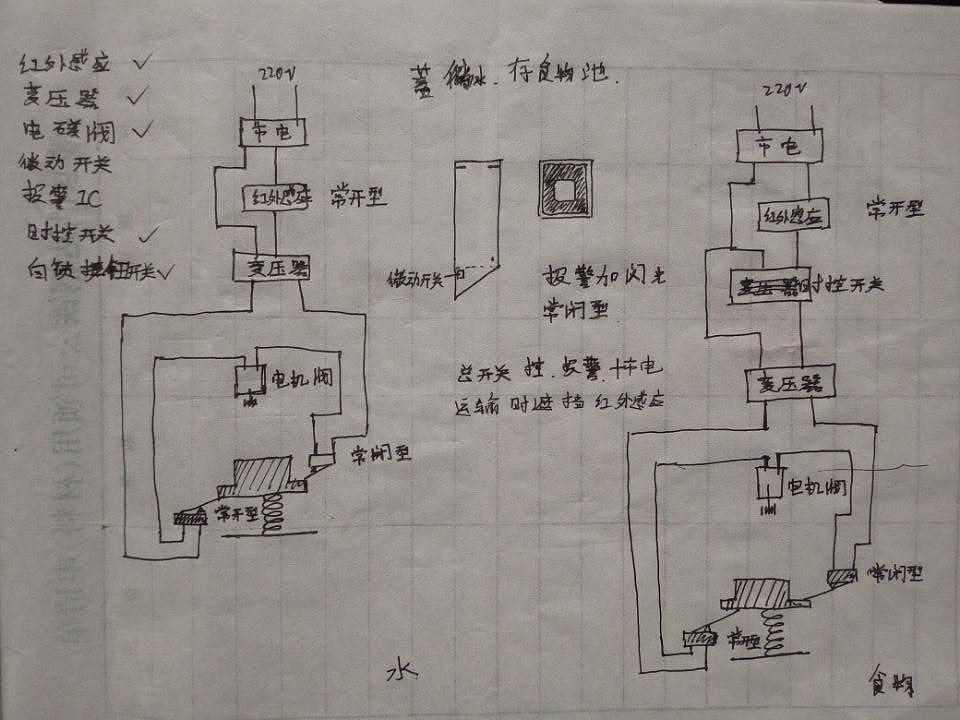 红外感应 ✓
变压器 ✓
电磁阀 ✓
微动开关
报警IC
时控开关 ✓
自锁按钮开关 ✓
220V
市电
红外感应
常开型
变压器
电机阀
常闭型
常开型
水
盖 储水. 存食物池.
微动开关
报警加闪光
常闭型
总开关 控. 报警. 市电
运输时遮挡红外感应
220V
市电
红外感应
常开型
时控开关
变压器
电机阀
常闭型
常开型
食物